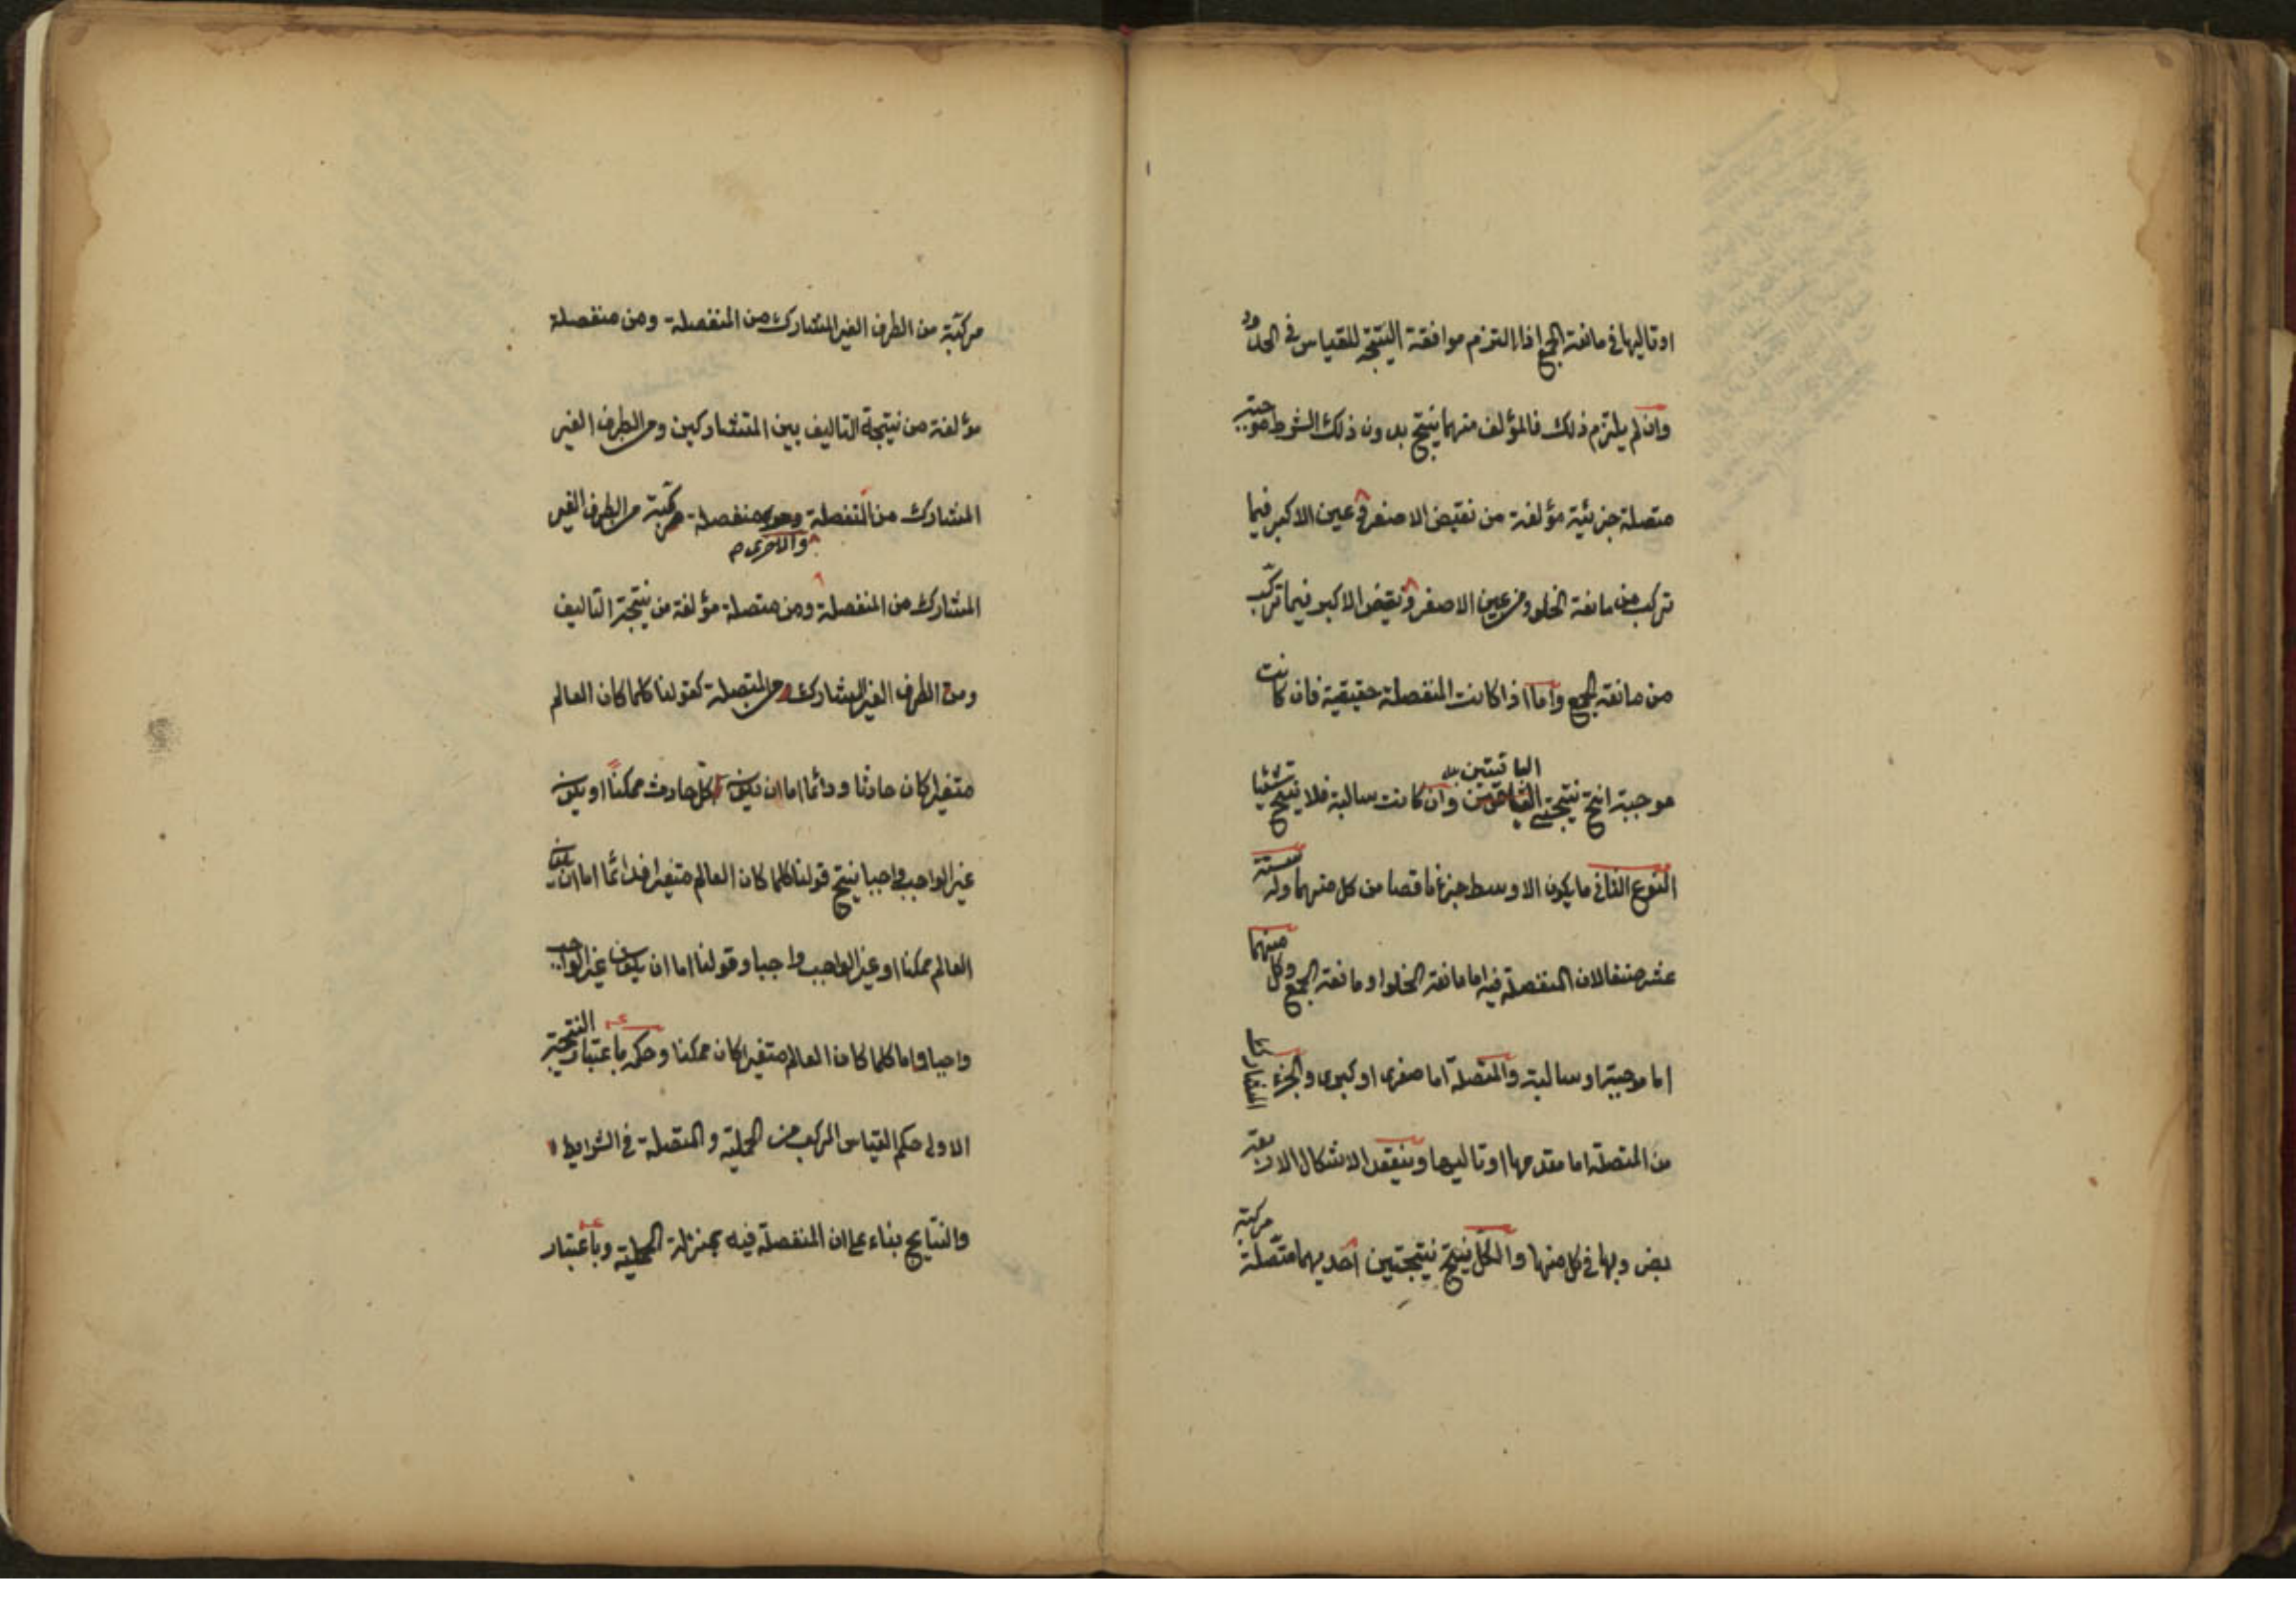 او تاليها في مانعة الجمع اذا التزم موافقة النتيجة للقياس في الحدود
وان لم يلتزم ذلك فالمؤلف منهما ينتج بدون ذلك الشرط موجبة
متصلة جزئية مؤلفة من نقيض الاصغر و عين الاكبر فيما
تركب من مانعة الخلو ومن عين الاصغر و نقيض الاكبر فيما تركب
من مانعة الجمع واما اذا كانت المنفصلة حقيقية فان كانت
موجبة انتج نتيجتي الباقيتين وان كانت سالبة فلا ينتج شيئا
النوع الثاني ما يكون الاوسط جزءا ناقصا من كل منهما وله ستة
عشر صنفا لان المنفصلة فيه اما مانعة الخلو او مانعة الجمع وكل منهما
اما موجبة او سالبة والمتصلة اما صغرى او كبرى والجزء المشارك
من المتصلة اما مقدمها او تاليها وينعقد الاشكال الاربعة
بضروبها في كل منها والكل ينتج نتيجتين احديهما متصلة مركبة
مركبة من الطرف الغير المشارك من المنفصلة ومن منفصلة
مؤلفة من نتيجة التاليف بين المتشاركين ومن الطرف الغير
المشارك من المنفصلة والاخرى منفصلة مركبة من الطرف الغير
المشارك من المنفصلة ومن متصلة مؤلفة من نتيجة التاليف
ومن الطرف الغير المشارك من المتصلة كقولنا كلما كان العالم
متغيرا كان حادثا ودائما اما ان يكون كل حادث ممكنا او يكون
غير الواجب واجبا ينتج قولنا كلما كان العالم متغيرا فدائما اما ان يكون
العالم ممكنا او غير الواجب واجبا وقولنا اما ان يكون غير الواجب
واجبا واما كلما كان العالم متغيرا كان ممكنا وحكمه باعتبار النتيجة
الاولى حكم القياس المركب من الحملية والمتصلة في الشرايط
والنتايج بناء على ان المنفصلة فيه بمنزلة الحملية وباعتبار